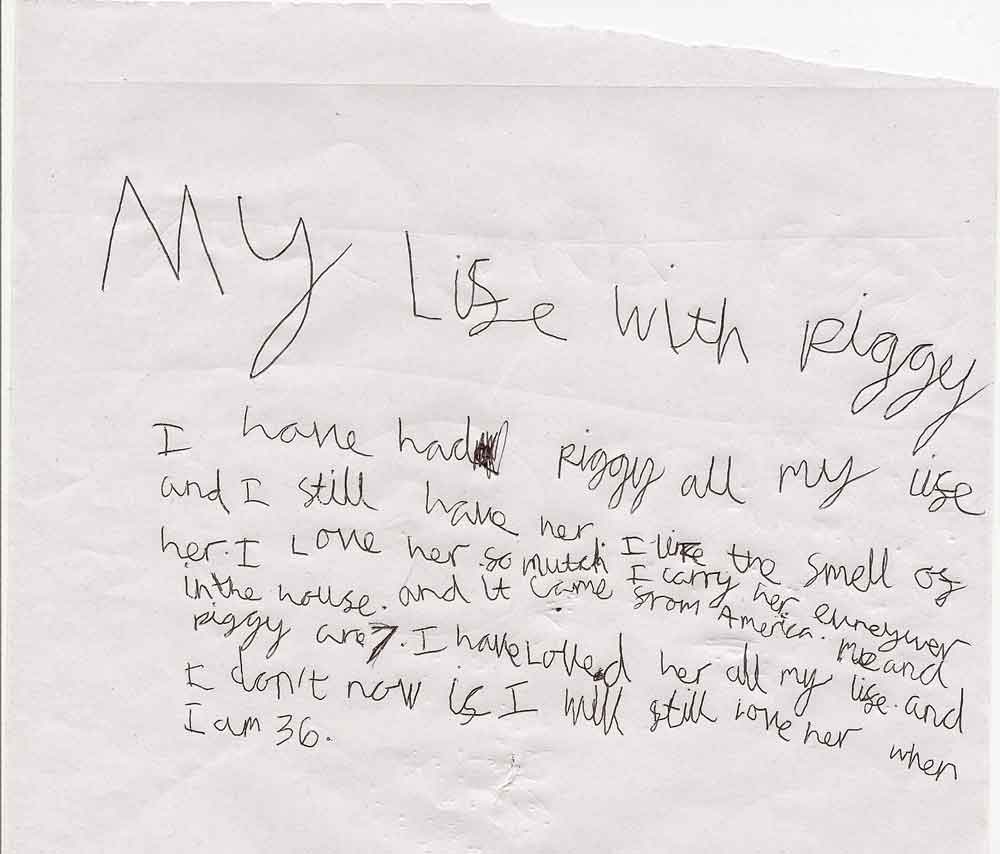 My Life with piggy
I have had piggy all my life
and I still have her. I like the smell of
her. I Love her so mutch I carry her evreywer
in the house. and it came from America. Me and
piggy are 7. I have Loved her all my life. and
I don't now if I will still love her when
I am 36.